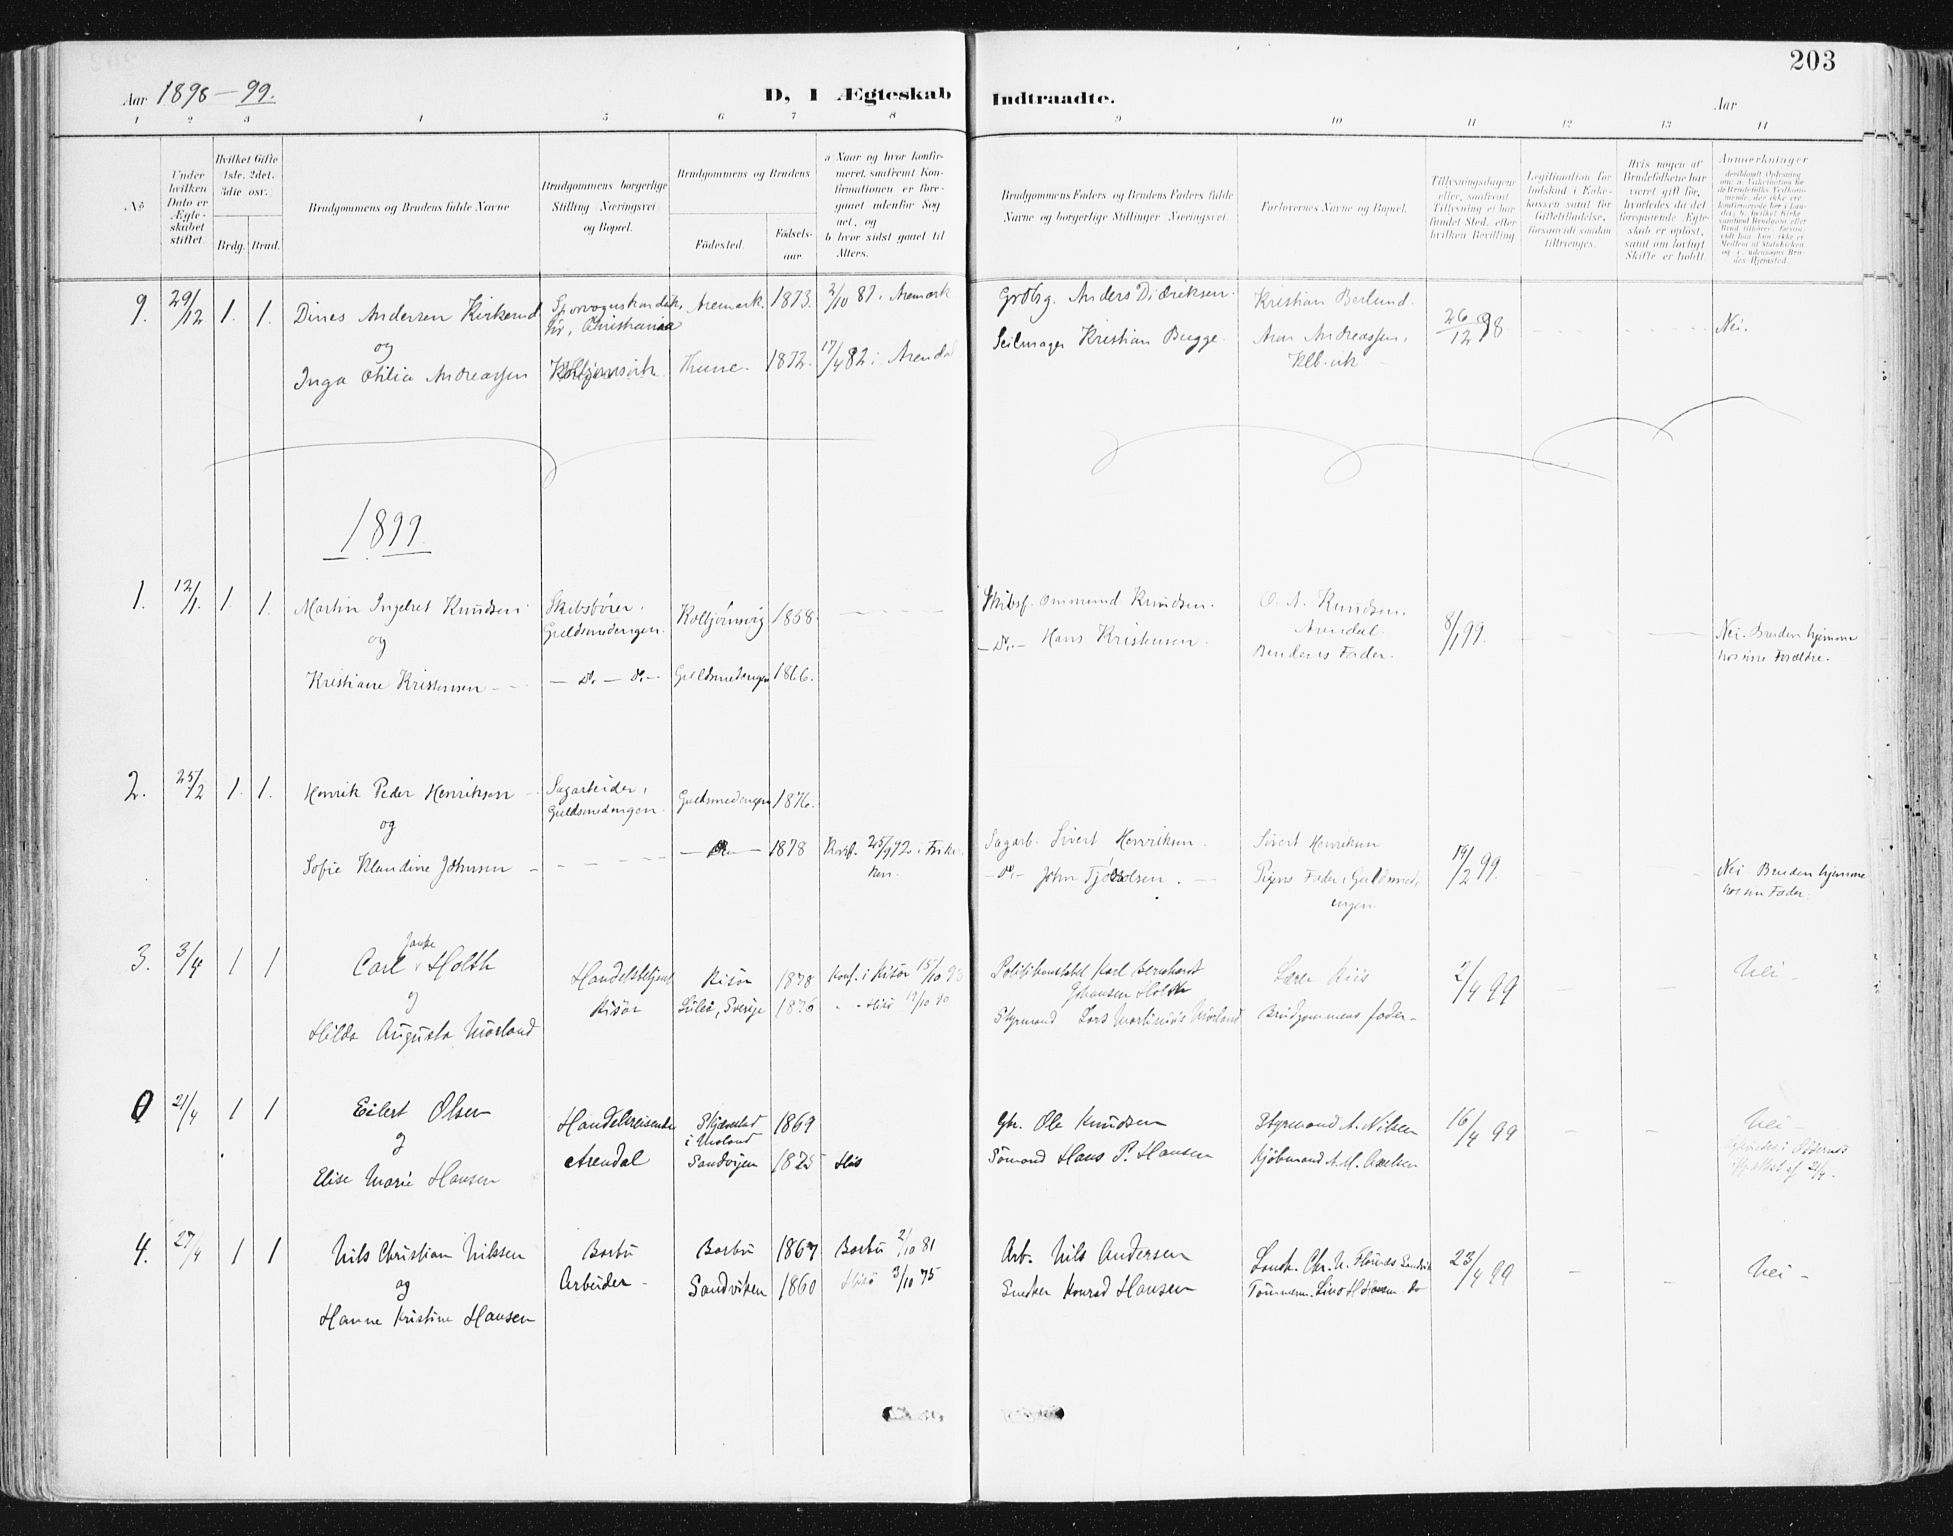 203
Aar 1898 – 99.
D, I Ægteskab
Indtraadte.
Aar
1 2 3 4 5 6 7 8 9 10 11 12 13 14
No
Under hvilken Dato er Ægteskabet stiftet.
Hvilket Gifte 1ste, 2det, 3die osv.
Brdg. Brud.
Brudgommens og Brudens fulde Navne
Brudgommens borgerlige Stilling Næringsvei og Bopæl.
Brudgommens og Brudens
Födested.
Födsels-aar
a Naar og hvor konfirmeret, samfremt Konfirmationen er foregaaet udenfor Sognet, og
b hvor sidst gaaet til Alters.
Brudgommens Faders og Brudens Faders fulde Navne og borgerlige Stillinger Næringsvei.
Forlovernes Navne og Bopæl.
Tillysningsdagene eller, saafremt Tillysning ei har fundet Sted, efter hvilken Bevilling
Legitimation for Indskud i Enkekassen samt for Giftetilladelse, forsaavidt saadan tiltrænges.
Hvis nogen af Brudefolkene har været gift før, hvorledes da det foregaaende Ægteskab er opløst, samt om lovligt Skifte er holdt
Anmerkninger
9. 29/12 1. 1. Dines Andersen Kirkerud Aremark. 1873. 2/10 87 i Aremark
Christiania
og
Inga Otilia Andreassen Kolbjørnsvik 1872. 17/4 82 i Arendal
Anders Didriksen. Kristian Berlund.
Seilmager Kristian Bugge. Aron Andreassen, 26/12 98. Nei.
1899.
1. 12/1. 1. 1. Martin Ingebret Knudsen Skibsfører. Guldsmedengen. Kolbjørnsvig 1858.
og
Kristiane Kristensen – Do – Do – Guldsmedengen 1866.
Skibsf. Ommund Knudsen. O. A. Knudsen, Arendal.
– Do – Hans Kristensen. Brudens Fader. 8/1 99. Nei. Bruden hjemme hos sine Forældre.
2. 25/2 1. 1. Henrik Peder Henriksen – Sagarbeider, Guldsmedengen. Guldsmedengen 1876.
og
Sofie Klaudine Johnsen – 1878
Sagarb. Sivert Henriksen. Sivert Henriksen
– Do – John
Pigens Fader, Guldsmedengen. 19/2 99. Nei Bruden hjemme hos sin Fader.
3. 3/4 1 1 Carl Holth Handelsbetjent Risør Risør 1878 Konf. i Risør 15/10 93
og
Hilda Augusta Morland Luleå, Sverige 1876 – Hisø 19/10 90
Politikonstabel Karl Bernhardt Johansen Holth Lærer Riis
Styrmand Lars Martinius Morland Brudgommens fader – 2/4 99 Nei –
0 21/4 1 1 Eilert Olsen Handelsreisende Arendal 1869
og
Elise Marie Hansen Sandvigen 1875 Hisø
Gbr. Ole Knudsen Styrmand A. Nilsen
Sømand Hans P. Hansen Kjøbmand A. M. Axelsen 16/4 99 Nei –
4. 27/4 1 1 Nils Christian Nilssen Barbu Arbeider – Barbu 1867 Barbu 2/10 81
og
Hanne Kristine Hansen Sandviken 1860 Hisø 3/10 75
Arb. Nils Andersen
Snekker Konrad Hansen 23/4 99 Nei –